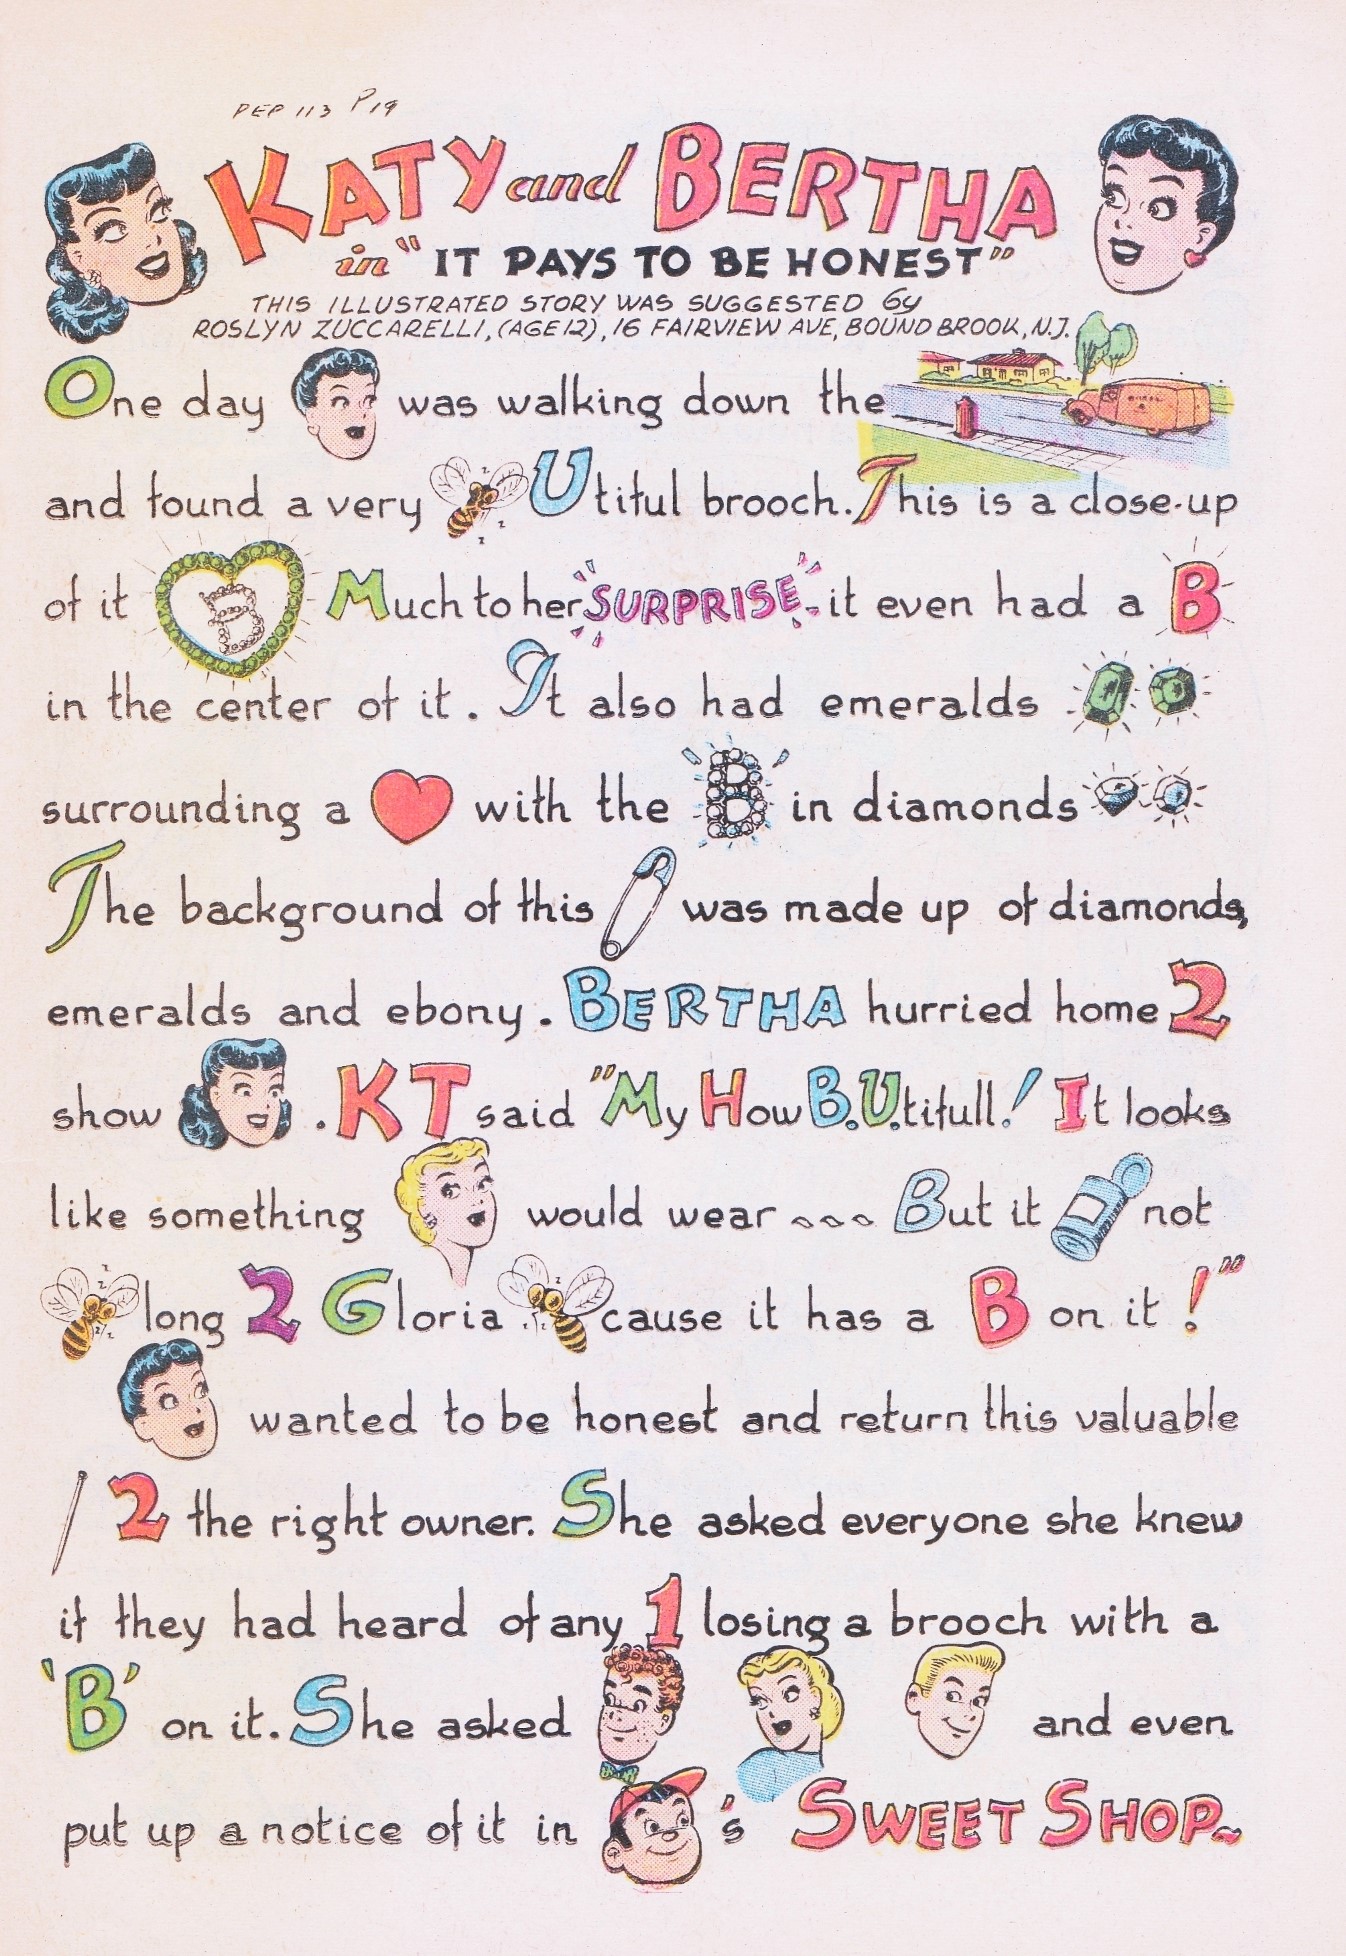 PEP 113 P19
KATY and BERTHA
in "IT PAYS TO BE HONEST"
THIS ILLUSTRATED STORY WAS SUGGESTED By
ROSLYN ZUCCARELLI, (AGE 12), 16 FAIRVIEW AVE, BOUND BROOK, N.J.
One day was walking down the
and found a very Utiful brooch. This is a close-up
of it B Much to her "SURPRISE", it even had a B
in the center of it. It also had emeralds
surrounding a with the B in diamonds
The background of this was made up of diamonds,
emeralds and ebony. BERTHA hurried home 2
show . KT said "My How B.U.tifull! It looks
like something would wear ... But it not
long 2 Gloria cause it has a B on it!"
wanted to be honest and return this valuable
2 the right owner. She asked everyone she knew
if they had heard of any 1 losing a brooch with a
'B' on it. She asked and even
put up a notice of it in 's SWEET SHOP~